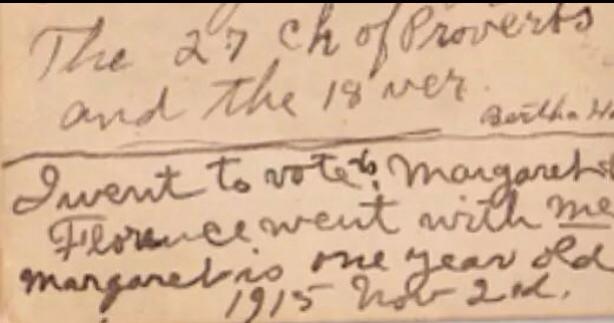 The 27 Ch of Proverbs
and the 18 ver.
Bertha
I went to vote. Margaret &
Florence went with me
Margaret is one year old
1915 Nov 2nd.